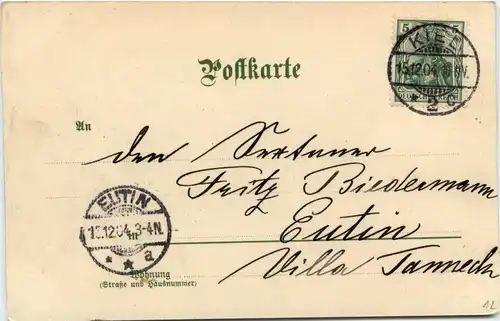 5 5
KIEL
15.12.04. 8-9N.
* 2 c
Postkarte
An
den Sextaner
Fritz Biedermann
EUTIN
15.12.04. 3-4N.
* * a
Eutin
Wohnung
(Straße und Hausnummer)
Villa Tanneck
12